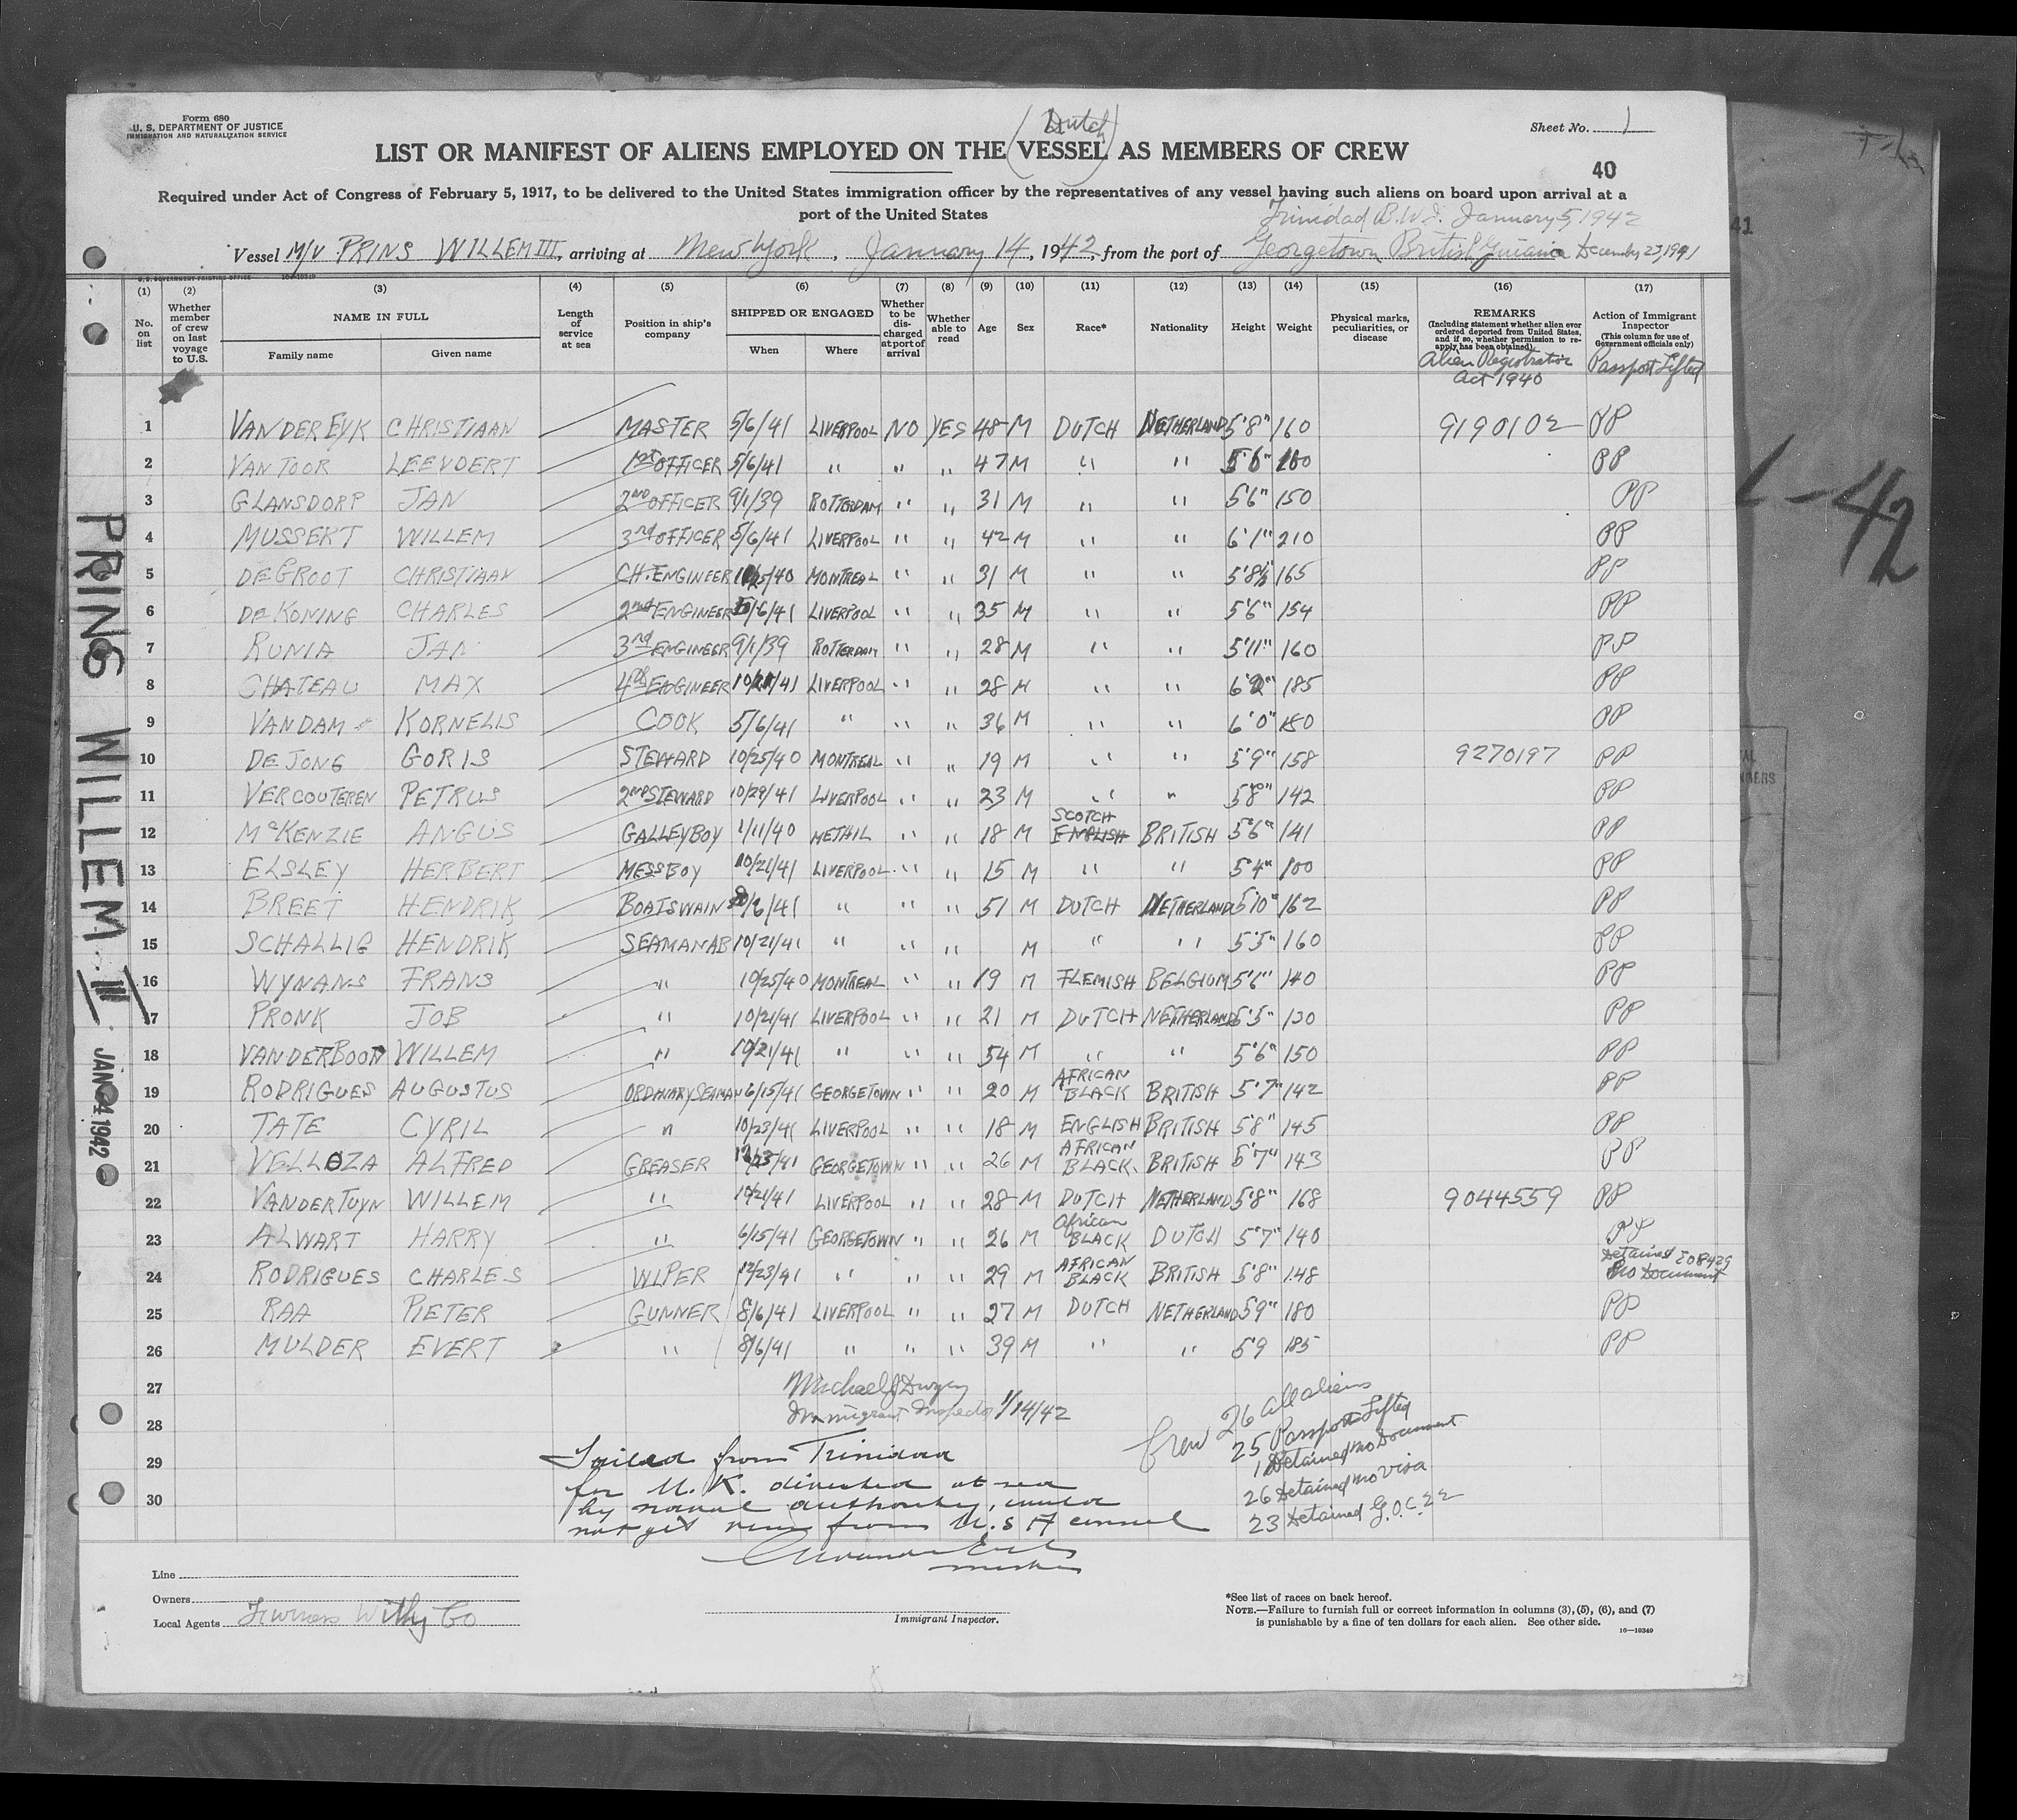 Form 680
U. S. DEPARTMENT OF JUSTICE
IMMIGRATION AND NATURALIZATION SERVICE
Sheet No. 1
(Dutch)
LIST OR MANIFEST OF ALIENS EMPLOYED ON THE VESSEL AS MEMBERS OF CREW
40
Required under Act of Congress of February 5, 1917, to be delivered to the United States immigration officer by the representatives of any vessel having such aliens on board upon arrival at a
port of the United States
Trinidad B.W.I. January 5, 1942
Vessel M/V PRINS WILLEM III, arriving at New York, January 14, 1942, from the port of Georgetown British Guiana December 23, 1941
U. S. GOVERNMENT PRINTING OFFICE 16-10349
(1) No. on list
(2) Whether member of crew on last voyage to U.S.
(3) NAME IN FULL Family name Given name
(4) Length of service at sea
(5) Position in ship's company
(6) SHIPPED OR ENGAGED When Where
(7) Whether to be discharged at port of arrival
(8) Whether able to read
(9) Age
(10) Sex
(11) Race*
(12) Nationality
(13) Height
(14) Weight
(15) Physical marks, peculiarities, or disease
(16) REMARKS (Including statement whether alien ever ordered deported from United States, and if so, whether permission to re-apply has been obtained) Alien Registration Act 1940
(17) Action of Immigrant Inspector (This column for use of Government officials only) Passport Lifted
1 VAN DER EYK CHRISTIAAN MASTER 5/6/41 LIVERPOOL NO YES 48 M DUTCH NETHERLAND 5'8" 160 9190102 PP
2 VAN TOOR LEENDERT 1st OFFICER 5/6/41 " " " 47 M " " 5'6" 160 PP
3 GLANSDORP JAN 2ND OFFICER 9/1/39 ROTTERDAM " " 31 M " " 5'6" 150 PP
4 MUSSERT WILLEM 3rd OFFICER 5/6/41 LIVERPOOL " " 42 M " " 6'1" 210 PP
5 DE GROOT CHRISTIAAN CH. ENGINEER 10/25/40 MONTREAL " " 31 M " " 5'8½ 165 PP
6 DE KONING CHARLES 2nd ENGINEER 5/6/41 LIVERPOOL " " 35 M " " 5'6" 154 PP
7 RUNIA JAN 3rd ENGINEER 9/1/39 ROTTERDAM " " 28 M " " 5'11" 160 PP
8 CHATEAU MAX 4th ENGINEER 10/21/41 LIVERPOOL " " 28 M " " 6'2" 185 PP
9 VAN DAM KORNELIS COOK 5/6/41 " " " 36 M " " 6'0" 180 PP
10 DE JONG GORIS STEWARD 10/25/40 MONTREAL " " 19 M " " 5'9" 158 9270197 PP
11 VERCOUTEREN PETRUS 2nd STEWARD 10/29/41 LIVERPOOL " " 23 M " " 5'8" 142 PP
12 McKENZIE ANGUS GALLEYBOY 1/11/40 METHIL " " 18 M SCOTCH ENGLISH BRITISH 5'6" 141 PP
13 ELSLEY HERBERT MESSBOY 10/21/41 LIVERPOOL " " 15 M " " 5'4" 100 PP
14 BREET HENDRIK BOATSWAIN 8/6/41 " " " 51 M DUTCH NETHERLAND 5'10" 162 PP
15 SCHALLIG HENDRIK SEAMAN AB 10/21/41 " " " M " " 5'5" 160 PP
16 WYNANS FRANS " 10/25/40 MONTREAL " " 19 M FLEMISH BELGIUM 5'6" 140 PP
17 PRONK JOB " 10/21/41 LIVERPOOL " " 21 M DUTCH NETHERLAND 5'5" 130 PP
18 VAN DER BOON WILLEM " 10/21/41 " " " 54 M " " 5'6" 150 PP
19 RODRIGUES AUGUSTUS ORDINARY SEAMAN 6/15/41 GEORGETOWN " " 20 M AFRICAN BLACK BRITISH 5'7" 142 PP
20 TATE CYRIL " 10/23/41 LIVERPOOL " " 18 M ENGLISH BRITISH 5'8" 145 PP
21 VELLOZA ALFRED GREASER 12/23/41 GEORGETOWN " " 26 M AFRICAN BLACK. BRITISH 5'7" 143 PP
22 VAN DER TUYN WILLEM " 10/21/41 LIVERPOOL " " 28 M DUTCH NETHERLAND 5'8" 168 9044559 PP
23 ALWART HARRY " 6/15/41 GEORGETOWN " " 26 M African BLACK DUTCH 5'7" 140 PP
24 RODRIGUES CHARLES WIPER 12/23/41 " " " 29 M AFRICAN BLACK BRITISH 5'8" 148 Detained E08429 No Document
25 RAA PIETER GUNNER 8/6/41 LIVERPOOL " " 27 M DUTCH NETHERLAND 5'9" 180 PP
26 MULDER EVERT " 8/6/41 " " " 39 M " " 5'9 185 PP
27
28
29
30
Michael J Dwyer
Immigrant Inspector 1/14/42
Crew 26 all aliens
25 Passports Lifted
1 Detained No Document
26 Detained No Visa
23 Detained G.O.C. 22
Sailed from Trinidad
for U.K. directed at sea
by naval authority, could
not get visa from U.S A consul
master
Line
Owners
Local Agents Furness Withy Co
Immigrant Inspector.
*See list of races on back hereof.
NOTE.—Failure to furnish full or correct information in columns (3), (5), (6), and (7)
is punishable by a fine of ten dollars for each alien. See other side.
16—10349
PRINS WILLEM III
JAN 14 1942
41
-42